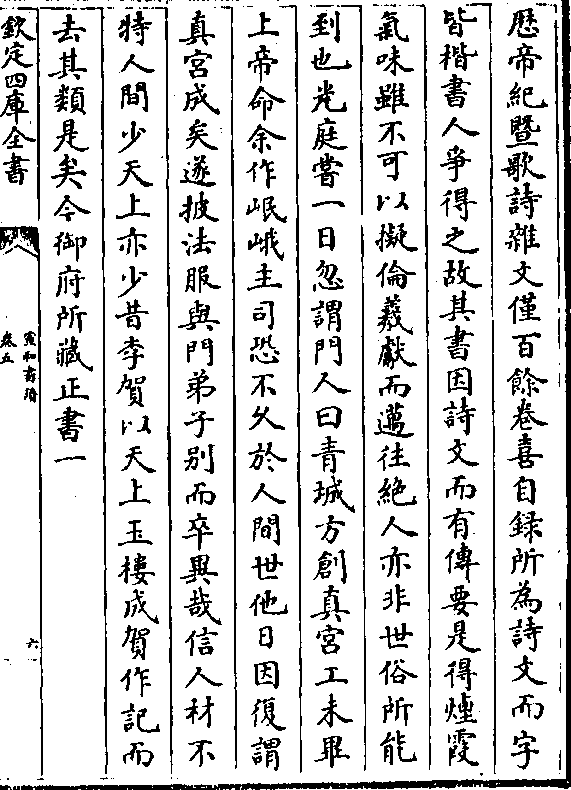 歴帝紀暨歌詩雜文僅百餘巻喜自録所為詩文而字
皆楷書人爭得之故其書因詩文而有傳要是得煙霞
氣味雖不可以擬倫羲獻而邁往絶人亦非世俗所能
到也光庭嘗一日忽謂門人曰青城方創真宮工未畢
上帝命余作岷峨主司恐不乆於人間世他日因復謂
真宮成矣遂披法服與門弟子别而卒異哉信人材不
特人間少天上亦少昔李賀以天上玉樓成賀作記而
去其類是矣今御府所藏正書一
欽定四庫全書
宣和書譜
卷五
六